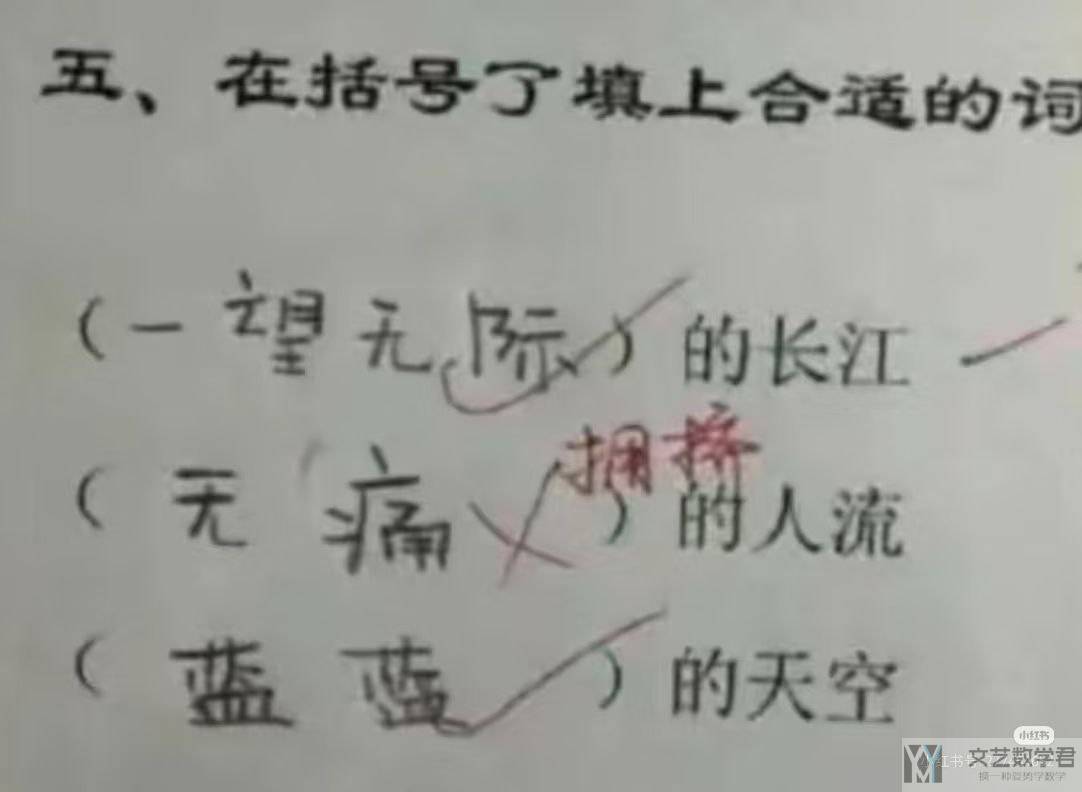 五、在括号了填上合适的词
(一望无际)的长江
拥挤
(无痛)的人流
(蓝蓝)的天空
小红书
文艺数学君